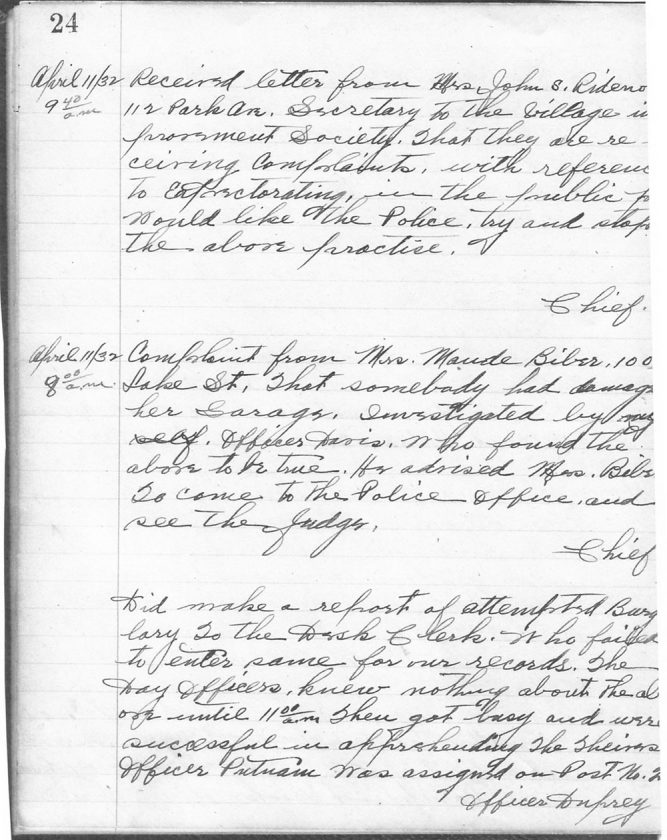 24
April 11/32 Received letter from Mrs. John S. Rideno
9 40/a.m 112 Park Av. Secretary to the Village im
provement Society. That they are re
ceiving Complaints, with referenc
to Expectorating, in the public p
Would like the Police, try and stop
the above practise.
Chief.
April 11/32 Complaint from Mrs. Maude Biber, 100
8 00/a.m. Lake St, That somebody had damage
her Garage. Investigated by my
self. Officer Davis. Who found the
above to be true. He advised Mrs. Bibe
To come to the Police Office, and
see the Judge.
Chief
Did make a report of attempted Burg
lary To the Desk Clerk. Who failed
to enter same for our records. The
Day Officers, knew nothing about the ab
ove until 11 00/a.m Then got busy and were
successful in apprehending The Theives
Officer Putnam Was assigned on Post No. 2
Officer Duprey